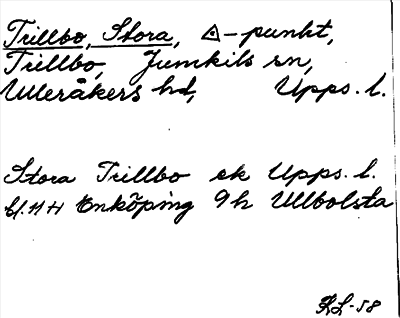 Trillbo, Stora, △-punkt,
Trillbo, Jumkils sn,
Ulleråkers hd, Upps. l.
Stora Trillbo ek Upps. l.
bl. 11 H Enköping 9h Ullbolsta
KL-58